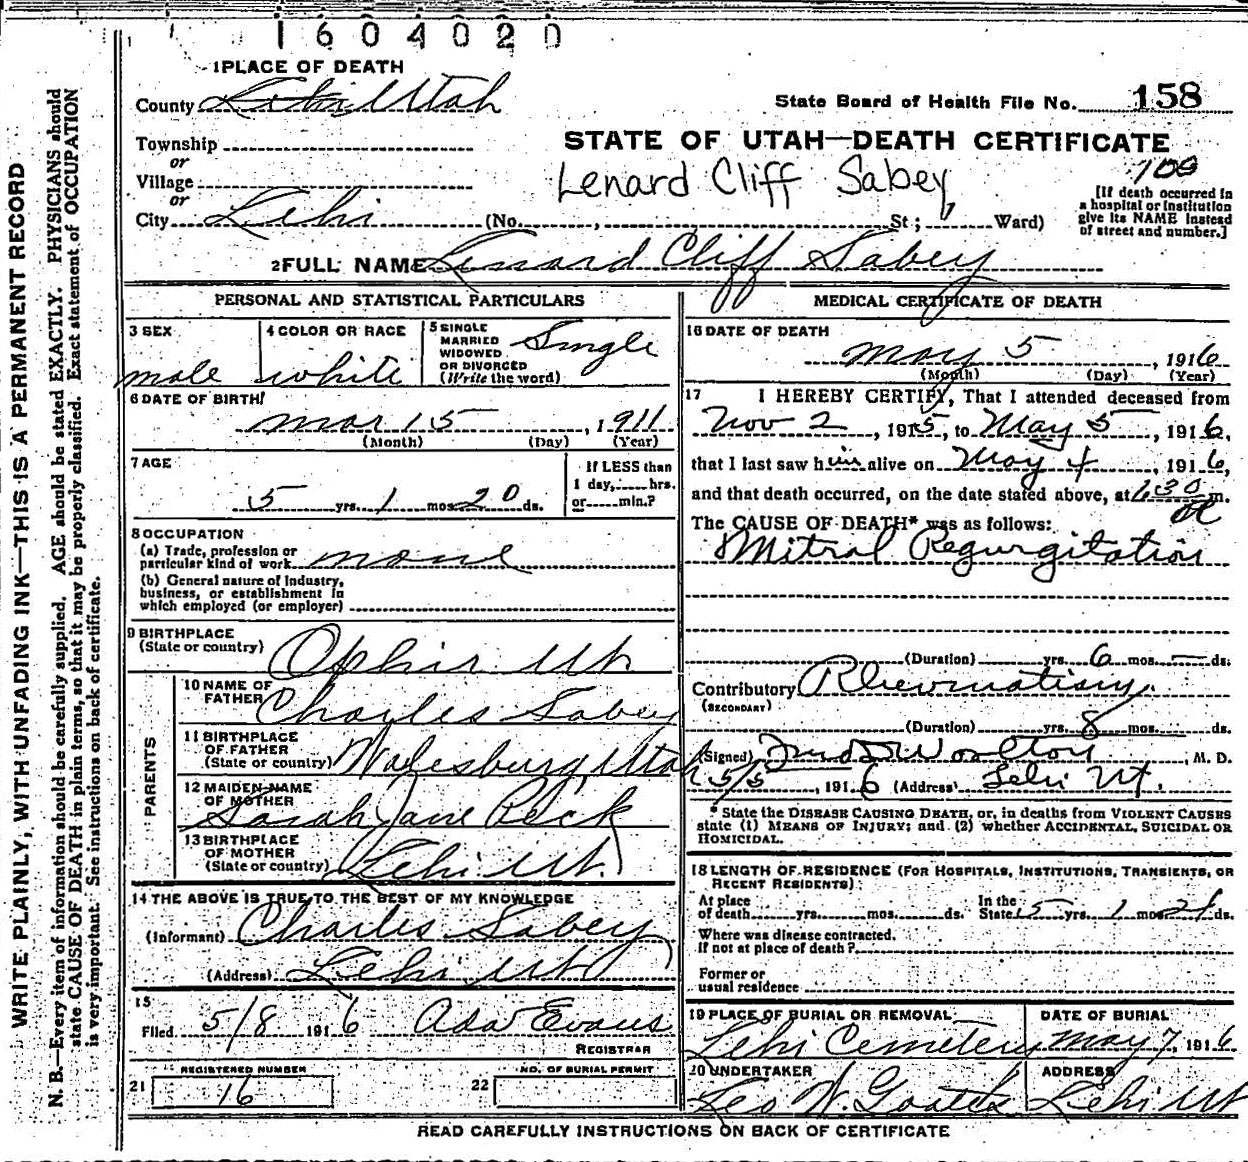 1604020
1 PLACE OF DEATH
County Utah
State Board of Health File No. 158
STATE OF UTAH—DEATH CERTIFICATE
Township
or
Village
or
Lenard Cliff Sabey
109
[If death occurred in
a hospital or institution
give its NAME instead
of street and number.]
City Lehi (No. , St; Ward)
2 FULL NAME Lenard Cliff Sabey
PERSONAL AND STATISTICAL PARTICULARS
3 SEX
male
4 COLOR OR RACE
white
5 SINGLE
MARRIED
WIDOWED
OR DIVORCED
(Write the word)
Single
6 DATE OF BIRTH
Mar 15, 1911
(Month) (Day) (Year)
7 AGE
5 yrs. 1 mos. 20 ds.
If LESS than
1 day, hrs.
or min.?
8 OCCUPATION
(a) Trade, profession or
particular kind of work none
(b) General nature of industry,
business, or establishment in
which employed (or employer)
9 BIRTHPLACE
(State or country) Ophir Ut
PARENTS
10 NAME OF
FATHER Charles Sabey
11 BIRTHPLACE
OF FATHER
(State or country) Utah
12 MAIDEN NAME
OF MOTHER
Sarah Jane Peck
13 BIRTHPLACE
OF MOTHER
(State or country) Lehi Ut.
14 THE ABOVE IS TRUE TO THE BEST OF MY KNOWLEDGE
(Informant) Charles Sabey
(Address) Lehi Ut
15
Filed 5/8 1916 Ada Evans
REGISTRAR
21 REGISTERED NUMBER
16
22 NO. OF BURIAL PERMIT
MEDICAL CERTIFICATE OF DEATH
16 DATE OF DEATH
May 5, 1916
(Month) (Day) (Year)
17 I HEREBY CERTIFY, That I attended deceased from
Nov 2, 1915, to May 5, 1916,
that I last saw him alive on May 4, 1916,
and that death occurred, on the date stated above, at 1 30 m.
The CAUSE OF DEATH* was as follows:
Mitral Regurgitation
(Duration) yrs. 6 mos. — ds.
Contributory Rheumatism.
(SECONDARY)
(Duration) yrs. 8 mos. ds.
(Signed) Woolton, M. D.
5/5, 1916 (Address) Lehi Ut.
* State the DISEASE CAUSING DEATH, or, in deaths from VIOLENT CAUSES
state (1) MEANS OF INJURY; and (2) whether ACCIDENTAL, SUICIDAL OR
HOMICIDAL.
18 LENGTH OF RESIDENCE (FOR HOSPITALS, INSTITUTIONS, TRANSIENTS, OR
RECENT RESIDENTS):
At place
of death yrs. mos. ds.
In the
State 5 yrs. 1 mos. 21 ds.
Where was disease contracted,
if not at place of death?
Former or
usual residence
19 PLACE OF BURIAL OR REMOVAL
Lehi Cemetery
DATE OF BURIAL
May 7, 1916
20 UNDERTAKER
Geo W. Goates
ADDRESS
Lehi Ut
READ CAREFULLY INSTRUCTIONS ON BACK OF CERTIFICATE
WRITE PLAINLY, WITH UNFADING INK—THIS IS A PERMANENT RECORD
N. B.—Every item of information should be carefully supplied. AGE should be stated EXACTLY. PHYSICIANS should
state CAUSE OF DEATH in plain terms, so that it may be properly classified. Exact statement of OCCUPATION
is very important. See instructions on back of certificate.